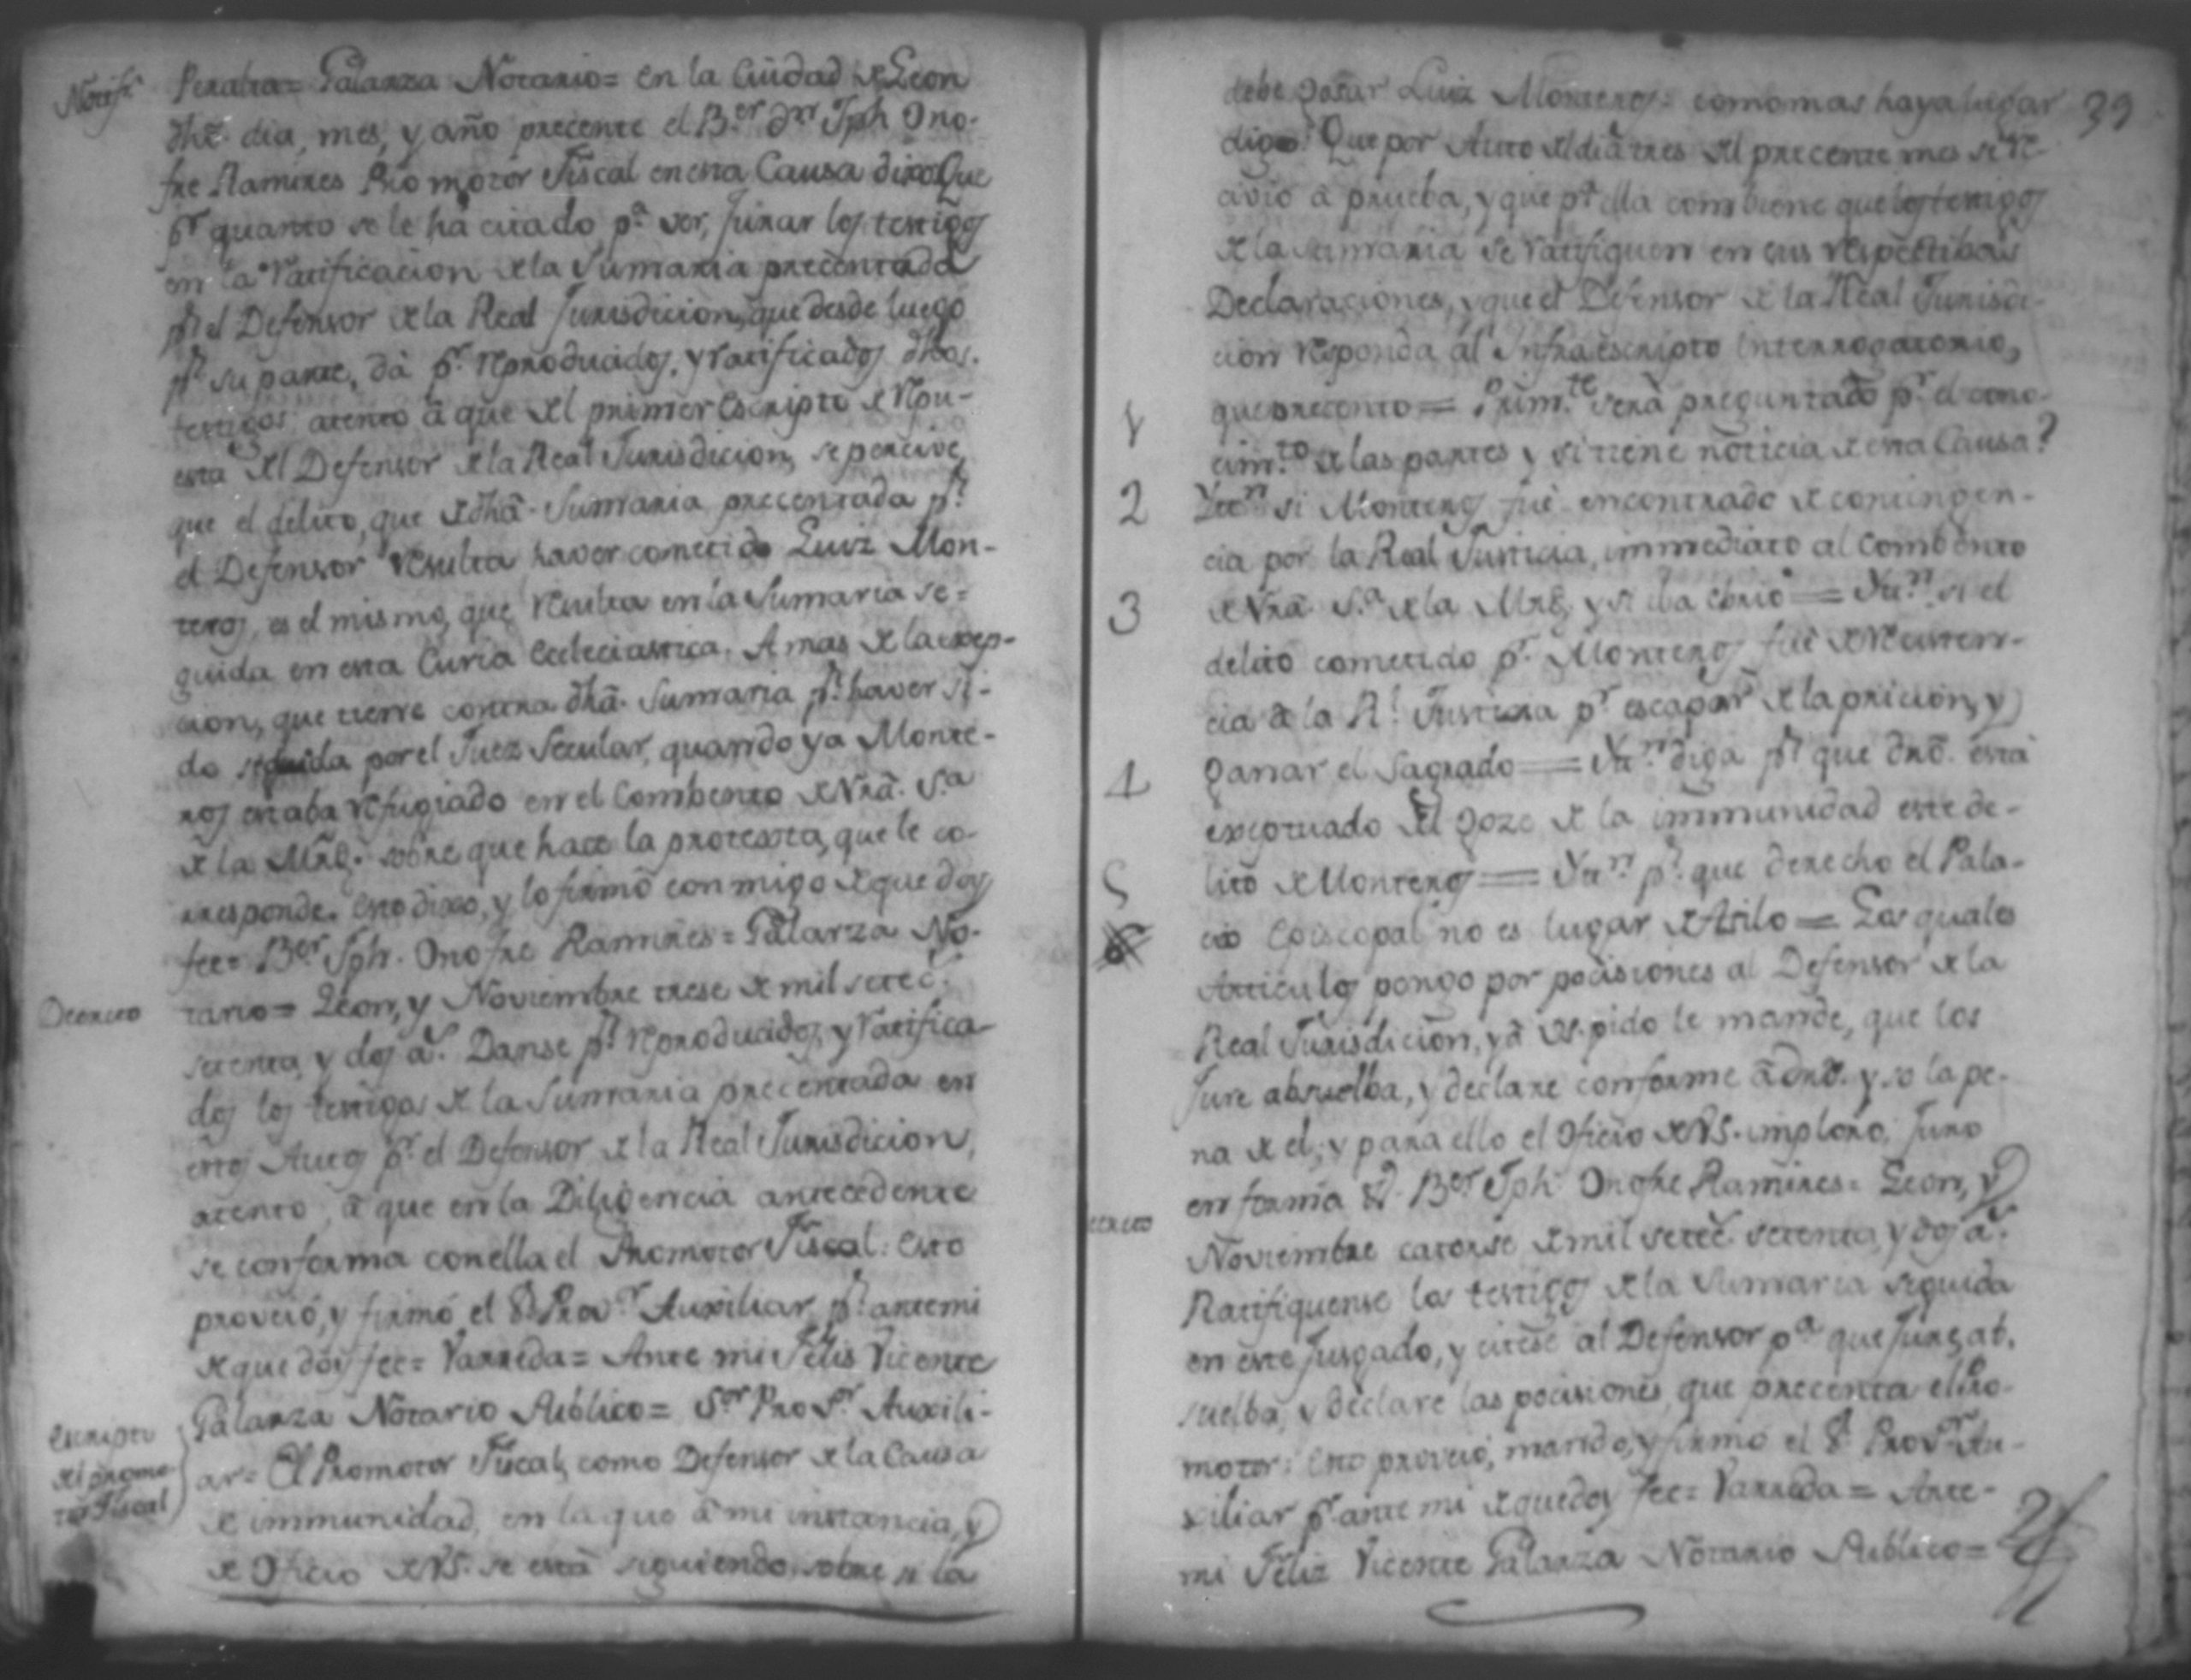 Notifⁿ
Peralta= Galarza Notario= en la Ciudad de Leon
dhõ. dia, mes, y año precente el B.er dⁿ Jph Ono-
fre Ramires Promotor Fiscal en esta Causa dixo Que
pr quanto se le há citado pa. ver, jurar los testigos
en la ratificacion de la Sumaria precentada
pr el Defensor de la Real Jurisdicion, que desde luego
pr su parte, dá pr. reproducidos, y ratificados dhos.
testigos atento á que del primer escripto de repu-
esta del Defensor de la Real Jurisdicion, se percive,
que el delito, que de dhã. Sumaria precentada pr
el Defensor resulta haver cometido Luiz Mon-
teros, es el mismo, que resulta en la Sumaria se=
guida en esta Curia Eccleciastica. A mas de la excep-
cion, que tiene contra dhã. Sumaria pr. haver si-
do seguida por el Juez Secular, quando ya Monte-
ros estaba refugiado en el Combento de Nrã. Sa
de la Mrd. sobre que hace la protexta, que le co-
rresponde. Esto dixo, y lo firmó conmigo de que doy
fee= B.er Jph. Onofre Ramires= Galarza No-
Decreto
tario= Leon, y Noviembre trese de mil setec.s
setenta, y dos as. Danse pr reproducidos, y ratifica-
dos los testigos de la Sumaria precentada en
estos Autos pr. el Defensor de la Real Jurisdicion,
atento, á que en la Diligencia antecedente
se conforma con ella el Promotor Fiscal: Esto
proveió, y firmó el Sr. Prov.r Auxiliar pr ante mi
de que doy fee= Varreda= Ante mi Felis Vicente
Galarza Notario Publico= S.or Prov.r Auxili-
Escripto
del promo-
tor Fiscal
ar= El Promotor Fiscal, como Defensor de la Causa
de immunidad, en la que á mi instancia, y
de Oficio de VS. se está siguiendo, sobre si la
39
debe gosar Luiz Monteros= como mas haya lugar
digo: Que por Auto del dia tres del precente mes se re-
civió á prueba, y que pa. ella combiene que los testigos
de la Sumaria se ratifiquen en sus respectibas
Declaraciones, y que el Defensor de la Real Jurisdi-
cion responda al Infraescripto Interrogatorio,
1
que precento= Prim.te será preguntado pr. el cono-
cim.to de las partes y si tiene noticia de esta Causa?
2
Ytn. si Monteros fué encontrado de contingen-
cia por la Real Justicia, immediato al Combento
3
de Nrã. S.a de la Mrd, y si iba ebrio= Ytn. si el
delito cometido pr. Monteros fué de resisten-
cia á la Rl. Justicia pr. escapar de la pricion, y
4
ganar el Sagrado= Ytn. diga pr que dro. está
exceptuado del goze de la immunidad este de-
5
lito de Monteros= Ytn. pr. que derecho el Pala-
cio Episcopal no es lugar de Asilo= Los quales
Articulos pongo por pocisiones al Defensor de la
Real Jurisdicion, y á VS. pido le mande, que los
jure absuelba, y declare conforme á dro. y so la pe-
na de el; y para ello el Oficio de VS. imploro, juro
en forma &. B.er Jph. Onofre Ramires= Leon, y
Noviembre catorse de mil setec.s setenta, y dos as.
Ratifiquense los testigos de la Sumaria seguida
en este Jusgado, y citese al Defensor pa. que jure, ab-
suelba, y declare las pocisiones, que precenta el Pro-
motor: Esto proveió, mandó, y firmó el Sr. Prov.r Au-
xiliar pr. ante mi de que doy fee= Varreda= Ante-
mi Feliz Vicente Galarza Notario Publico=